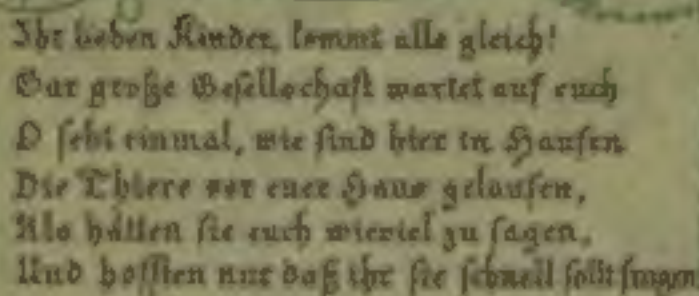 Ihr lieben Kinder, kommt alle gleich!
Gar große Gesellschaft wartet auf euch
O seht einmal, wie sind hier in Haufen
Die Thiere vor euer Haus gelaufen,
Als hätten sie euch wieviel zu sagen,
Und hofften nur daß ihr sie schnell sollt fragen